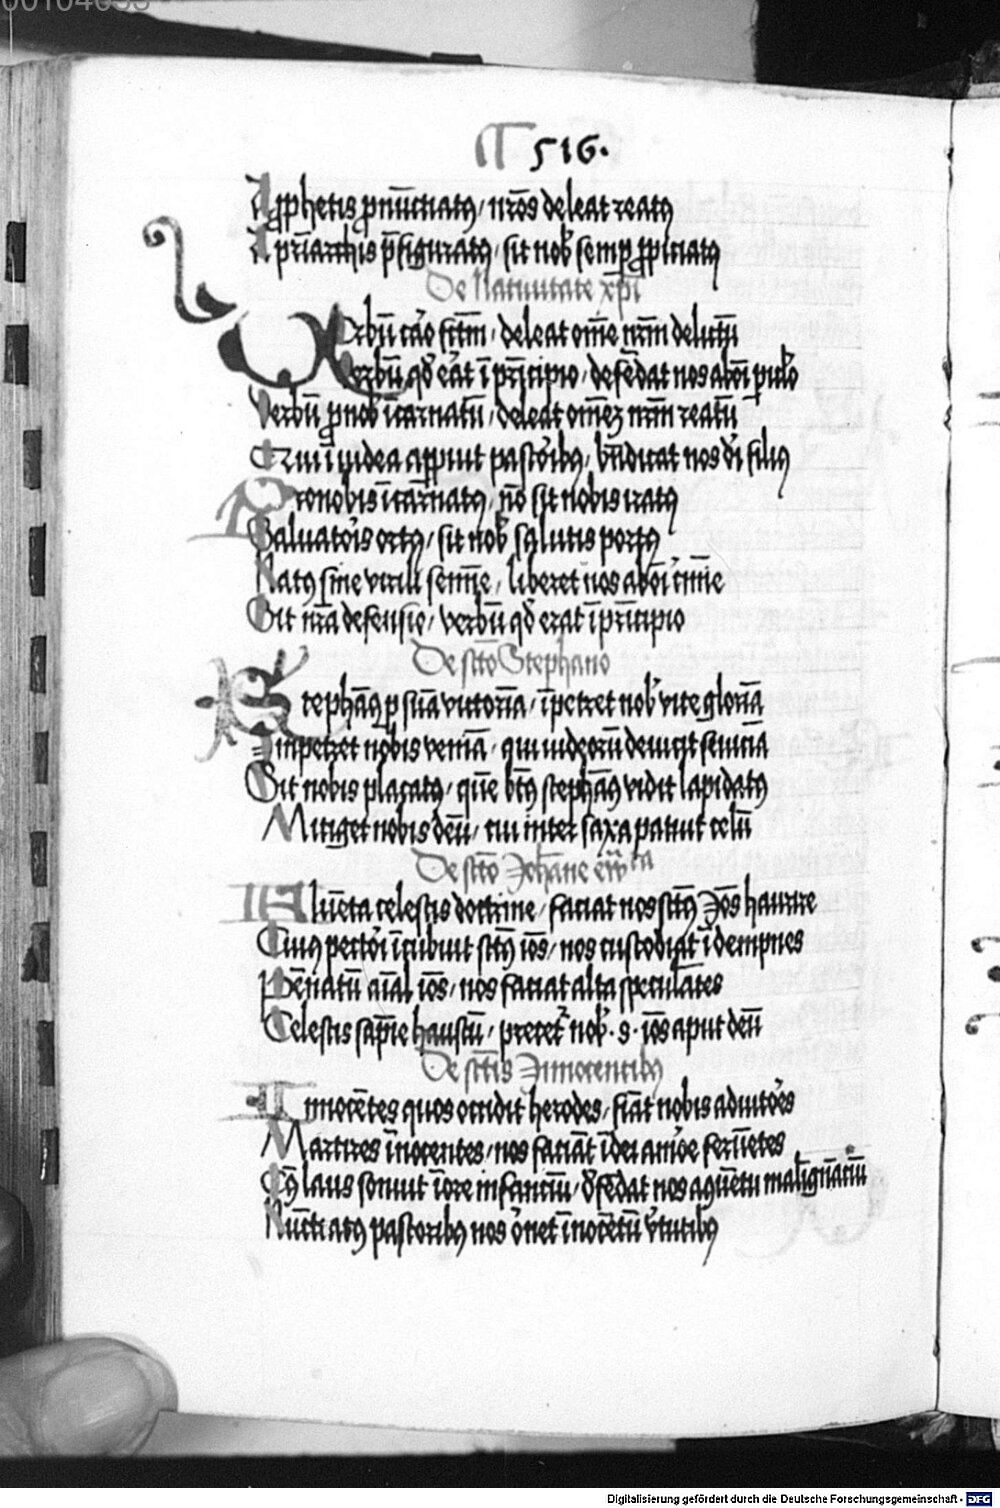 00104633
¶ 516.
A ꝓphetis pronūciatꝰ, nr̄os deleat reatꝰ
A pr̄iarchis p̄figuratꝰ, sit nob̄ semꝑ ꝓpiciatꝰ
De Natiuitate xp̄i
Verbū caro fctm̄, deleat om̄e nr̄m delictū
Verbū qd̄ erat ī prīcipio, defēdat nos ab om̄i
Verbū ꝓ nob̄ īcarnatū, deleat om̄ez nr̄m reatū
Cuiꝰ ī iudea apparuit pastōibꝰ, bn̄dicat nos dī filiꝰ
Pro nobis īcarnatꝰ, nō sit nobis iratꝰ
Saluatoris ortꝰ, sit nob̄ salutis portꝰ
Natꝰ sine virili semīe, liberet nos ab om̄i cm̄ie
Sit nr̄a defensio, verbū qd̄ erat ī prīcipio
De scto Stephano
Stephanꝰ ꝑ suā victoriā, īpetret nob̄ vite gloriā
Inpetret nobis veniā, qui iudeorū deuicit seuiciā
Sit nobis placatꝰ, quē btꝰ stephanꝰ vidit lapidatꝰ
Mitiget nobis deū, cui inter saxa patuit celū
De scto Johāne ewāta
Fluēta celestis doctrine, faciat nos sctꝰ Joēs haurire
Cuiꝰ pectori īcubuit sctꝰ ioēs, nos custodiat īdempnes
Pēnatū aīal ioēs, nos faciat alta speculātes
Celestis sapīe haustū, precet' nob̄ . s . ioēs aput deū
De sctis Innocentibꝰ
Innocētes quos occidit herodes, fiāt nobis adiutores
Martires īnocentes, nos faciāt ī dei amore feruētes
Cꝰ laus sonuit ī ore infanciū, d̄fēdat nos a malignāciū
Nūciatꝰ pastoribꝰ nos ornet īnocētū v̄tutibꝰ
Digitalisierung gefördert durch die Deutsche Forschungsgemeinschaft - DFG